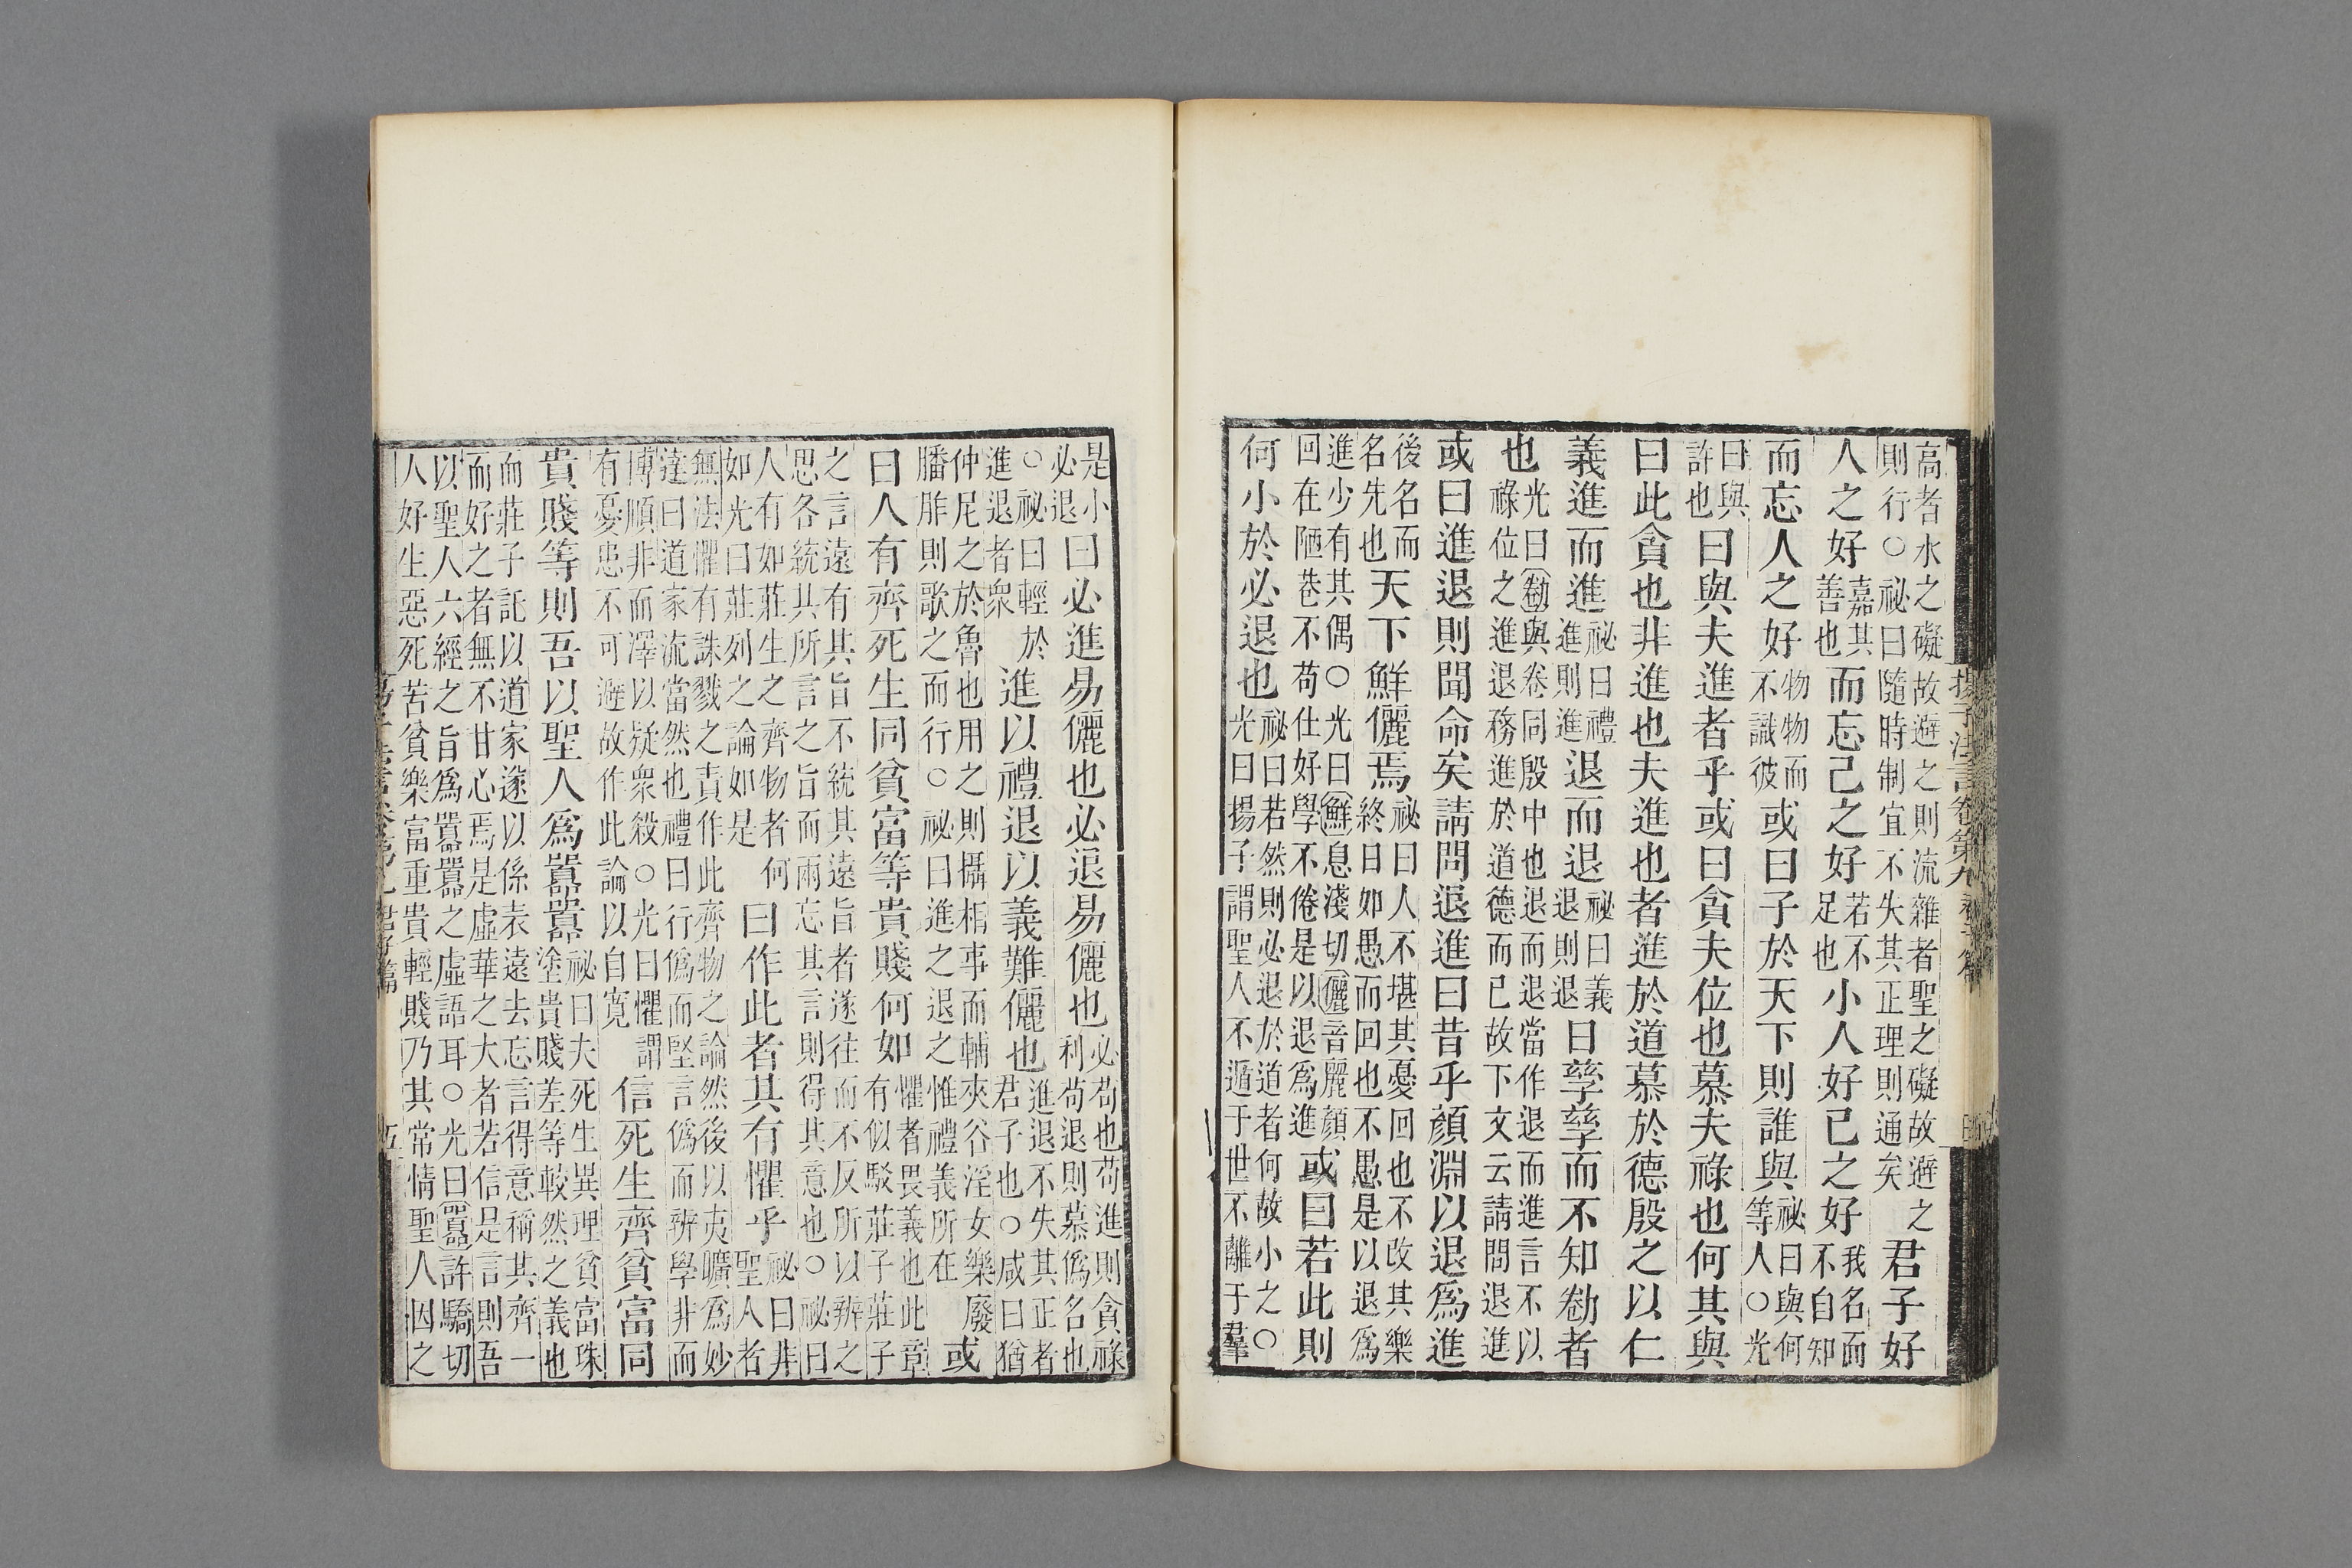 高者水之礙故避之則流雜者聖之礙故避之
則行○祕曰隨時制宜不失其正理則通矣
君子好
人之好
嘉其
善也
而忘己之好
若不
足也
小人好已之好
我名而
不自知
而忘人之好
物物而
不識彼
或曰子於天下則誰與
祕曰與何
等人○光
曰與
許也
曰與夫進者乎或曰貪夫位也慕夫祿也何其與
曰此貪也非進也夫進也者進於道慕於德殷之以仁
義進而進
祕曰禮
進則進
退而退
祕曰義
退則退
曰孳孳而不知勌者
也
光曰勌與卷同殷中也退而退當作退而進言不以
祿位之進退務進於道德而已故下文云請問退進
或曰進退則聞命矣請問退進曰昔乎顏淵以退爲進
後名而
名先也
天下鮮儷焉
祕曰人不堪其憂回也不改其樂
終日如愚而回也不愚是以退爲
進少有其偶○光曰鮮息淺切儷音麗顏
回在陋巷不苟仕好學不倦是以退爲進
或曰若此則
何小於必退也
祕曰若然則必退於道者何故小之○
光曰揚子謂聖人不遁于世不離于羣
揚子法言卷第九
是小
必退
曰必進易儷也必退易儷也
必苟也苟進則貪祿
利苟退則慕僞名也
○祕曰輕於
進退者衆
進以禮退以義難儷也
進退不失其正者
君子也○咸曰猶
仲尼之於魯也用之則攝相事而輔夾谷淫女樂廢
膰胙則歌之而行○祕曰進之退之惟禮義所在
或
曰人有齊死生同貧富等貴賤何如
懼者畏義也此章
有似駁莊子莊子
之言遠有其旨不統其遠旨者遂往而不反所以辨之
思各統其所言之旨而兩忘其言則得其意也○祕曰
人有如莊生之齊物者何
如光曰莊列之論如是
曰作此者其有懼乎
祕曰非
聖人者
無法懼有誅戮之責作此齊物之論然後以夷曠爲妙
達曰道家流當然也禮曰行僞而堅言僞而辨學非而
博順非而澤以疑衆殺○光曰懼謂
有憂患不可避故作此論以自寛
信死生齊貧富同
貴賤等則吾以聖人爲嚻嚻
祕曰夫死生異理貧富珠
塗貴賤差等較然之義也
而莊子託以道家遂以係表遠去忘言得意稱其齊一
而好之者無不甘心焉是虛華之大者若信是言則吾
以聖人六經之旨爲嚻嚻之虛語耳○光曰嚻許驕切
人好生惡死苦貧樂富重貴輕賤乃其常情聖人因之